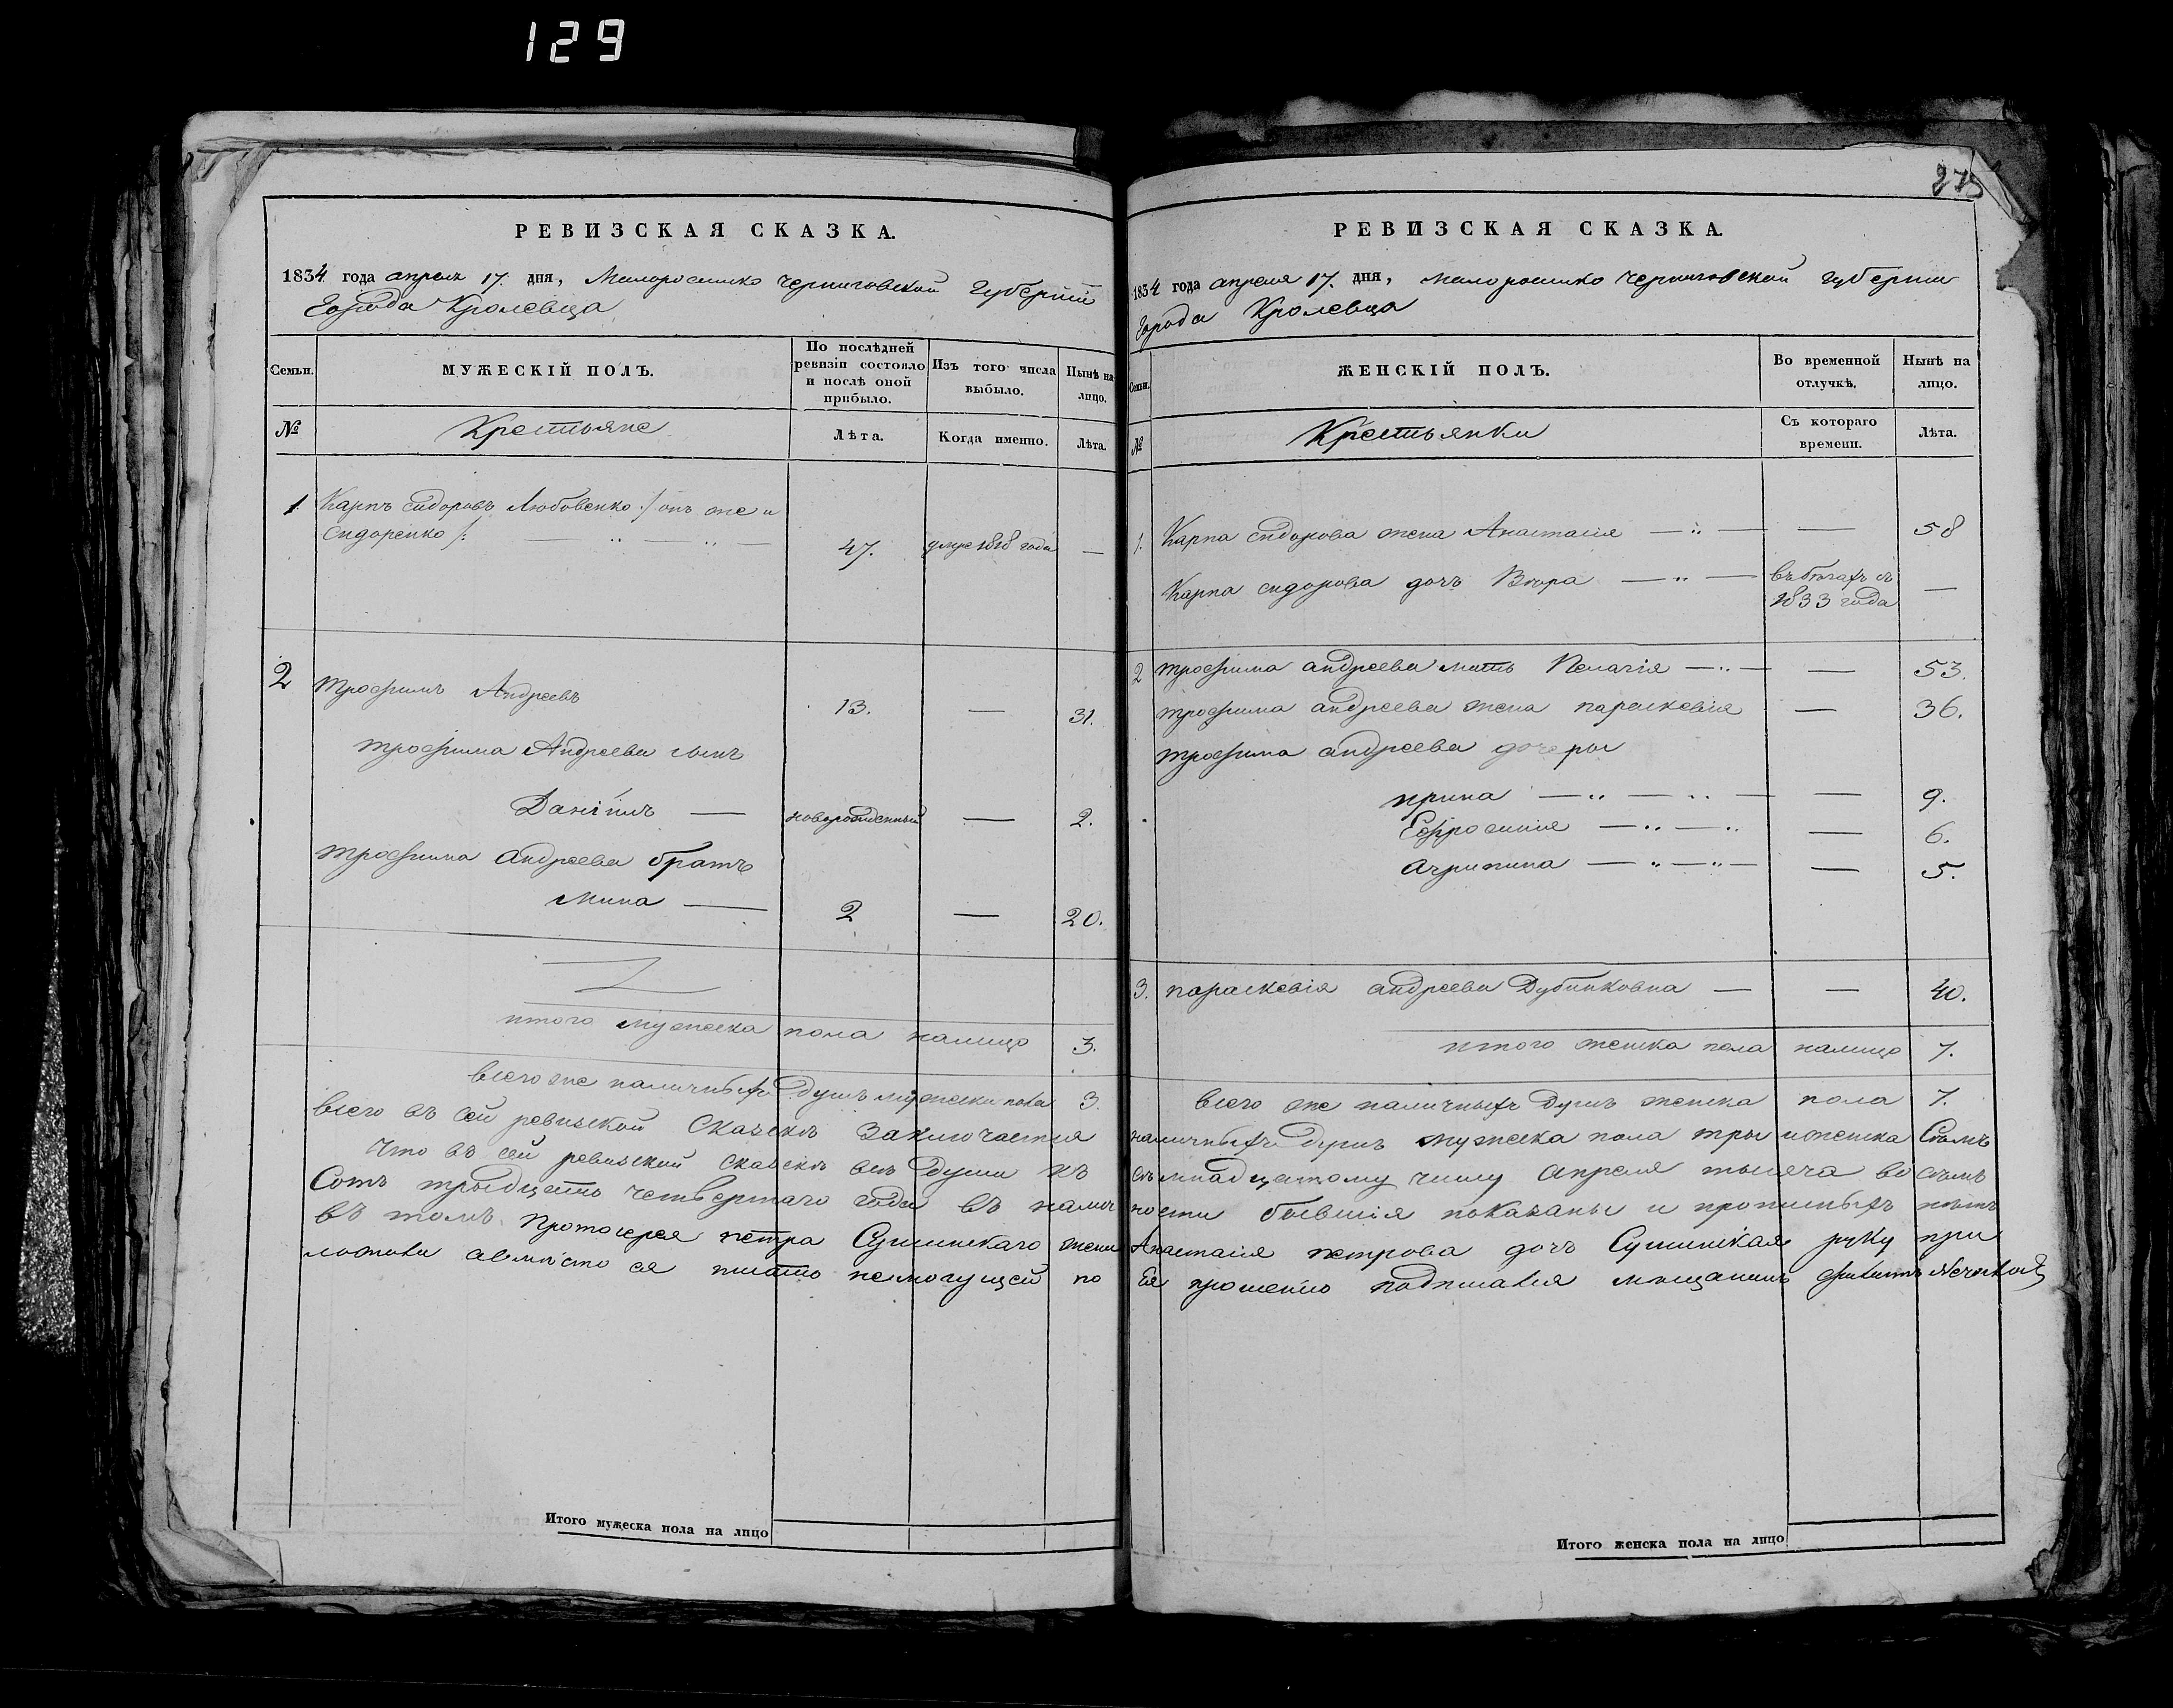 129
РЕВИЗСКАЯ СКАЗКА.
1834 года апреля 17. дня, Малоросийско Черниговской Губернии
Города Кролевца
Семьи.
МУЖЕСКІЙ ПОЛЪ.
По послѣдней ревизіи состояло и послѣ оной прибыло.
Изъ того числа выбыло.
Нынѣ на лицо.
№
Крестьяне
Лѣта.
Когда именно.
Лѣта.
1 Карпъ Сидоровъ Любовенко /: онъ же и
Сидоренко /: 47. умре 1818 года —
2 Трофимъ Андреевъ 13. — 31.
Трофима Андреева сынъ
Даніилъ — новорожденный — 2.
Трофима Андреева братъ
Мина — 2 — 20.
итого мужеска пола налицо 3.
всего же наличныхъ душъ мужеска пола 3.
275
РЕВИЗСКАЯ СКАЗКА.
1834 года апреля 17. дня, Малоросийско Черниговской Губернии
Города Кролевца
Семьи.
ЖЕНСКІЙ ПОЛЪ.
Во временной отлучкѣ.
Нынѣ на лицо.
№
Крестьянки
Съ котораго времени.
Лѣта.
1. Карпа Сидорова жена Анастасія — — 58
Карпа Сидорова дочь Вѣра — въ бѣгахъ съ
1833 года —
2 Трофима Андреева мать Пелагія — — 53.
Трофима Андреева жена Параскевія — 36.
Трофима Андреева дочеры
Ирина — — 9.
Ефросинія — — 6.
Агрипина — — 5.
3. Параскевія Андреева Дубинковна — — 40.
итого женска пола налицо 7.
всего же наличныхъ душъ женска пола 7.
всего въ сей ревизской сказскѣ заключается наличныхъ душъ мужеска пола тры и женска Семъ
Что въ сей ревизской сказскѣ всѣ души къ съмнадцатому числу апреля тысяча во съмъ
Сотъ трыдцать четвертаго года въ налич ности бывшія показаны и прописныхъ нѣтъ
въ томъ Протоіерея петра Сушинскаго жена Анастасія петрова дочь Сушинская руку при
ложила авмѣсто ея писать немогущей по Ея прошенію подписался мещанинъ
Итого мужеска пола на лицо
Итого женска пола на лицо